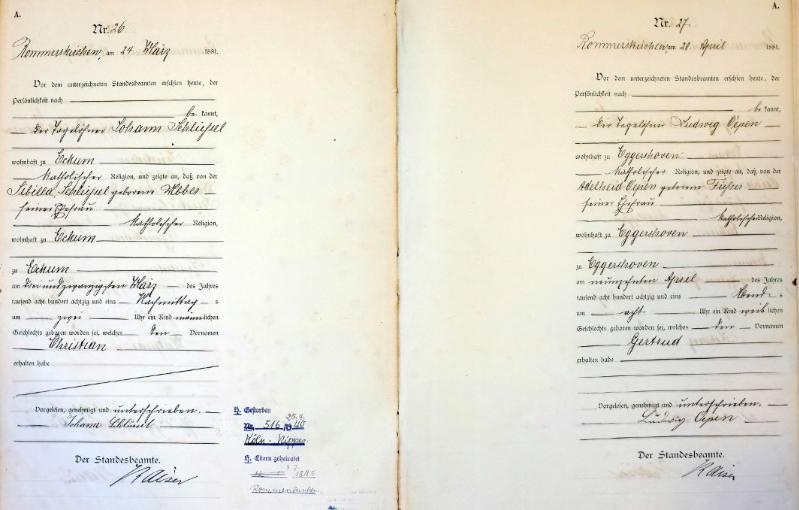 A.
Nr. 26
Rommerskirchen, am 24 März 1881.
Vor dem unterzeichneten Standesbeamten erschien heute, der
Persönlichkeit nach
be kannt,
der Tagelöhner Johann Schliessel
wohnhaft zu Eckum
katholischer Religion, und zeigte an, daß von der
Sibilla Schliessel geborene Abbes
seiner Ehefrau
katholischer Religion,
wohnhaft zu Eckum
zu Eckum
am dreiundzwanzigsten März des Jahres
tausend acht hundert achtzig und eins Nachmittag s
um zwei Uhr ein Kind männlichen
Geschlechts geboren worden sei, welches den Vornamen
Christian
erhalten habe
Vorgelesen, genehmigt und unterschrieben.
Johann
Der Standesbeamte.
Kaiser
H. Gestorben
25.4.
Nr. 516/1940
Köln-Nippes
H. Eltern geheiratet
A.
Nr. 27
Rommerskirchen, am 20 April 1881.
Vor dem unterzeichneten Standesbeamten erschien heute, der
Persönlichkeit nach
be kannt,
der Tagelöhner Ludwig Oepen
wohnhaft zu Eggershoven
katholischer Religion, und zeigte an, daß von der
Adelheid Oepen geborene
seiner Ehefrau
katholischer Religion,
wohnhaft zu Eggershoven
zu Eggershoven
am neunzehnten April des Jahres
tausend acht hundert achtzig und eins Abend s
um acht Uhr ein Kind weiblichen
Geschlechts geboren worden sei, welches den Vornamen
Gertrud
erhalten habe
Vorgelesen, genehmigt und unterschrieben.
Ludwig Oepen
Der Standesbeamte.
Kaiser